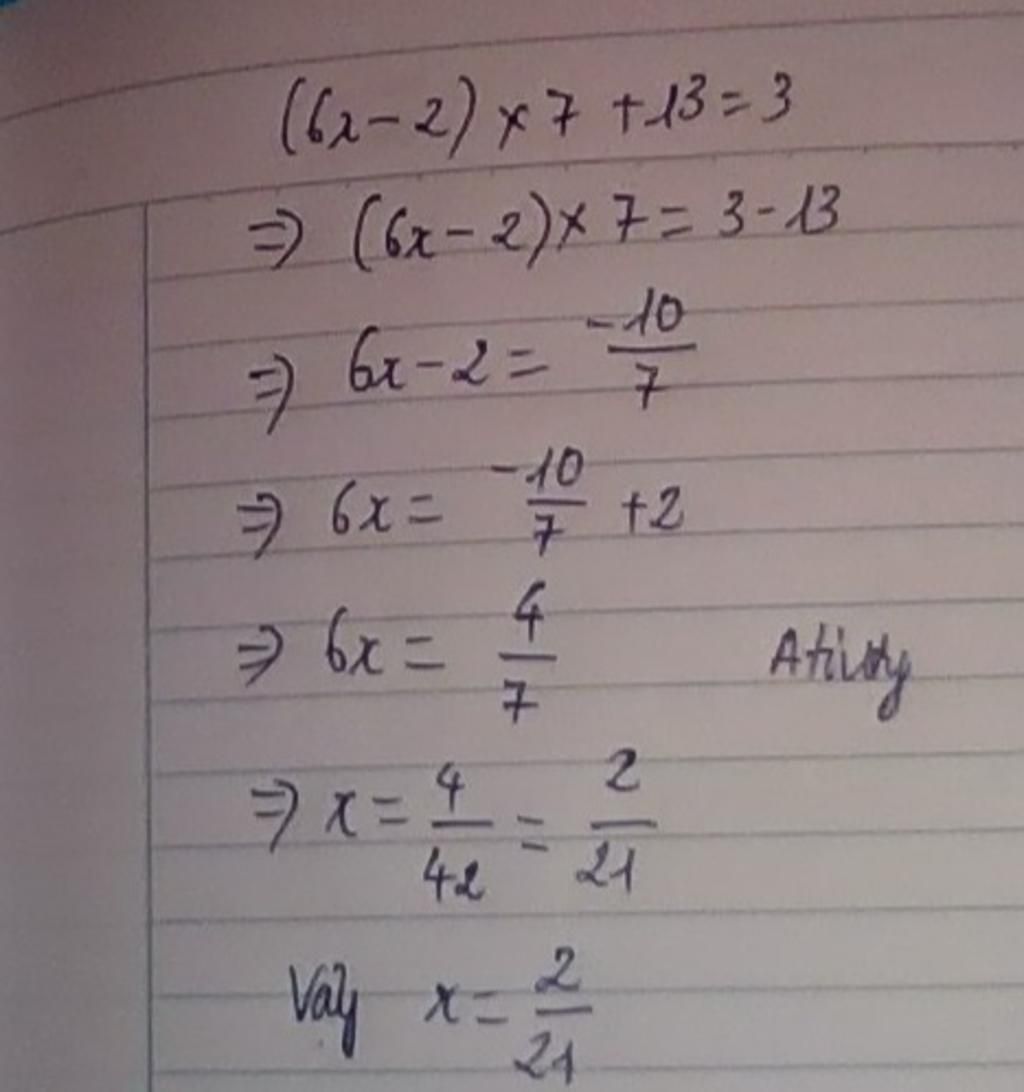 (6x - 2) × 7 + 13 = 3
⇒ (6x - 2) × 7 = 3 - 13
⇒ 6x - 2 = -10/7
⇒ 6x = -10/7 + 2
⇒ 6x = 4/7
⇒ x = 4/42 = 2/21
Vậy x = 2/21